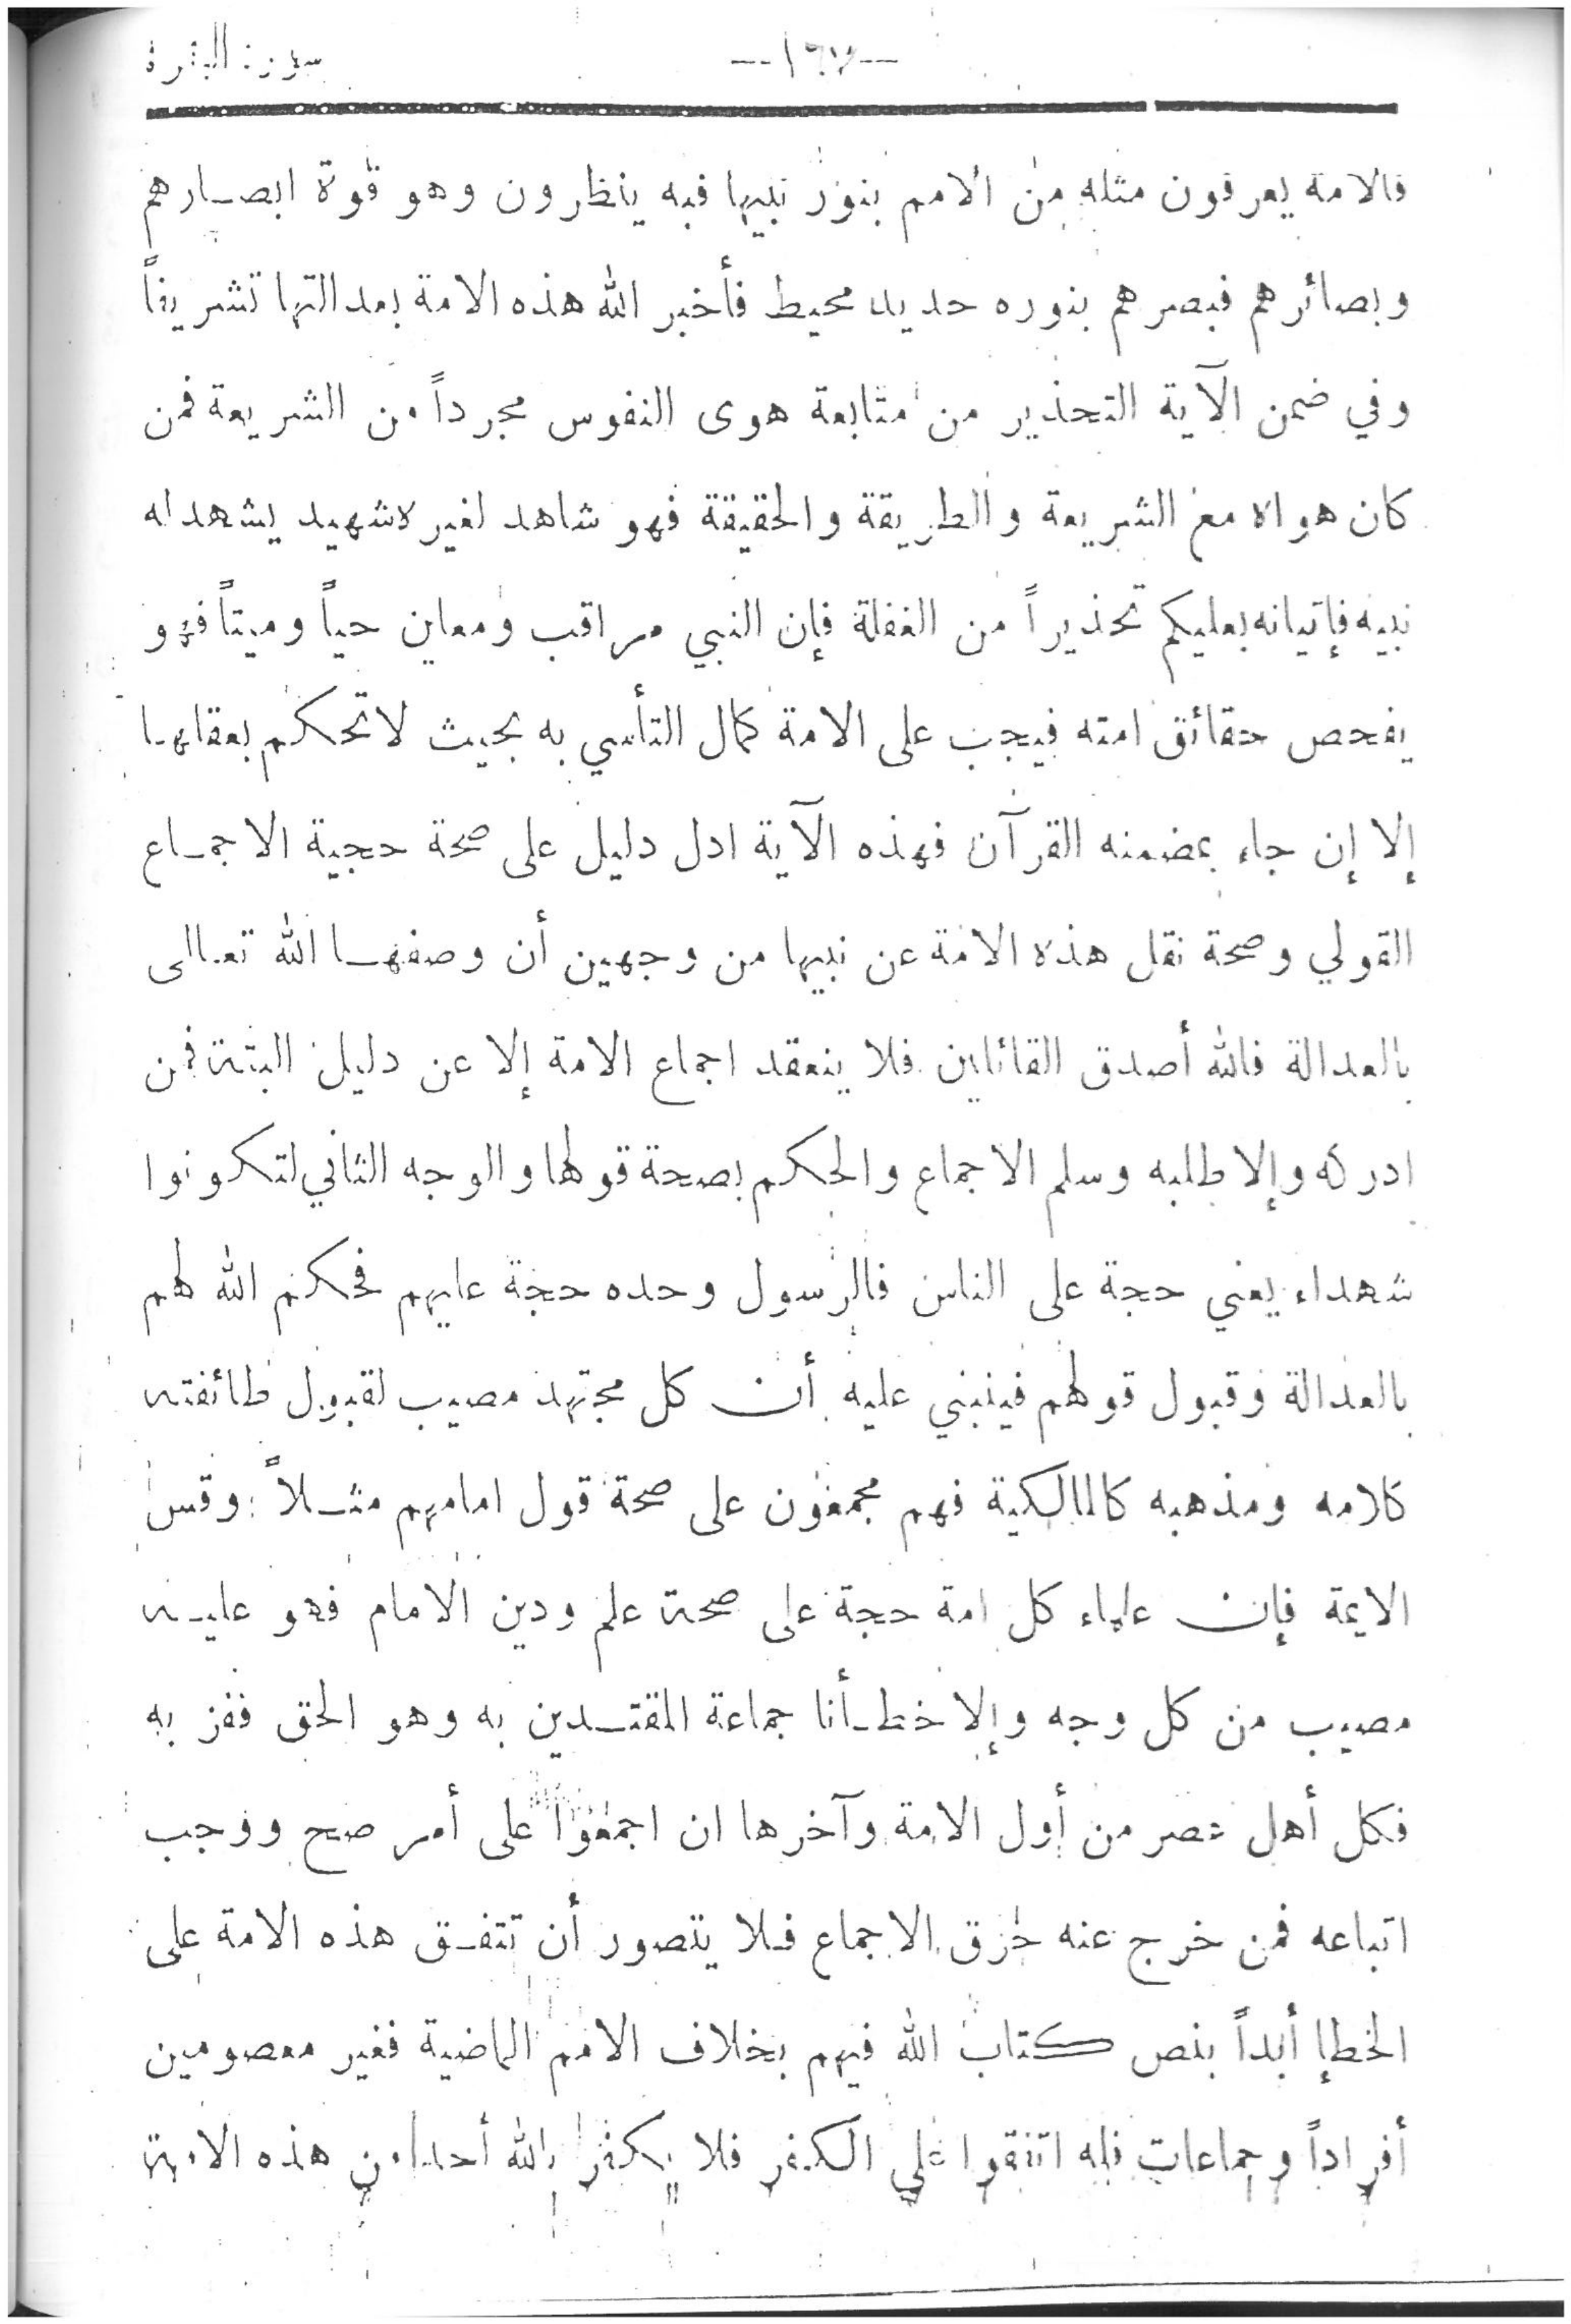 سورة البقرة
فالامة يعرفون مثله من الامم بنور نبيها فبه ينظرون وهو قوة ابصارهم
وبصائرهم فبصرهم بنوره حديد محيط فأخبر الله هذه الامة بعدالتها تشريفاً
وفي ضمن الآية التحذير من متابعة هوى النفوس مجرداً من الشريعة فمن
كان هواه مع الشريعة والطريقة والحقيقة فهو شاهد لغيره شهيد يشهد له
نبيه فإتيانه بعليكم تحذيراً من الغفلة فإن النبي مراقب ومعاين حياً وميتاً فهو
يفحص حقائق امته فيجب على الامة كمال التأسي به بحيث لا تحكم بعقلها
إلا إن جاء بمضمنه القرآن فهذه الآية ادل دليل على صحة حجية الاجماع
القولي وصحة نقل هذه الامة عن نبيها من وجهين أن وصفها الله تعالى
بالعدالة فالله أصدق القائلين فلا ينعقد اجماع الامة إلا عن دليل البتة فمن
ادركه وإلا طلبه وسلم الاجماع والحكم بصحة قولها والوجه الثاني لتكونوا
شهداء يعني حجة على الناس فالرسول وحده حجة عليهم فحكم الله لهم
بالعدالة وقبول قولهم فينبني عليه أن كل مجتهد مصيب لقبول طائفته
كلامه ومذهبه كالمالكية فهم مجمعون على صحة قول امامهم مثلاً وقس
الايمة فإن علماء كل امة حجة على صحة علم ودين الامام فهو عليه
مصيب من كل وجه وإلا خطأنا جماعة المقتدين به وهو الحق ففز به
فكل أهل عصر من أول الامة وآخرها ان اجمعوا على أمر صح ووجب
اتباعه فمن خرج عنه خرق الاجماع فلا يتصور أن تتفق هذه الامة على
الخطإ أبداً بنص كتاب الله فيهم بخلاف الامم الماضية فغير معصومين
أفراداً وجماعات فله اتفقوا على الكفر فلا يكفر بالله أحد من هذه الامة